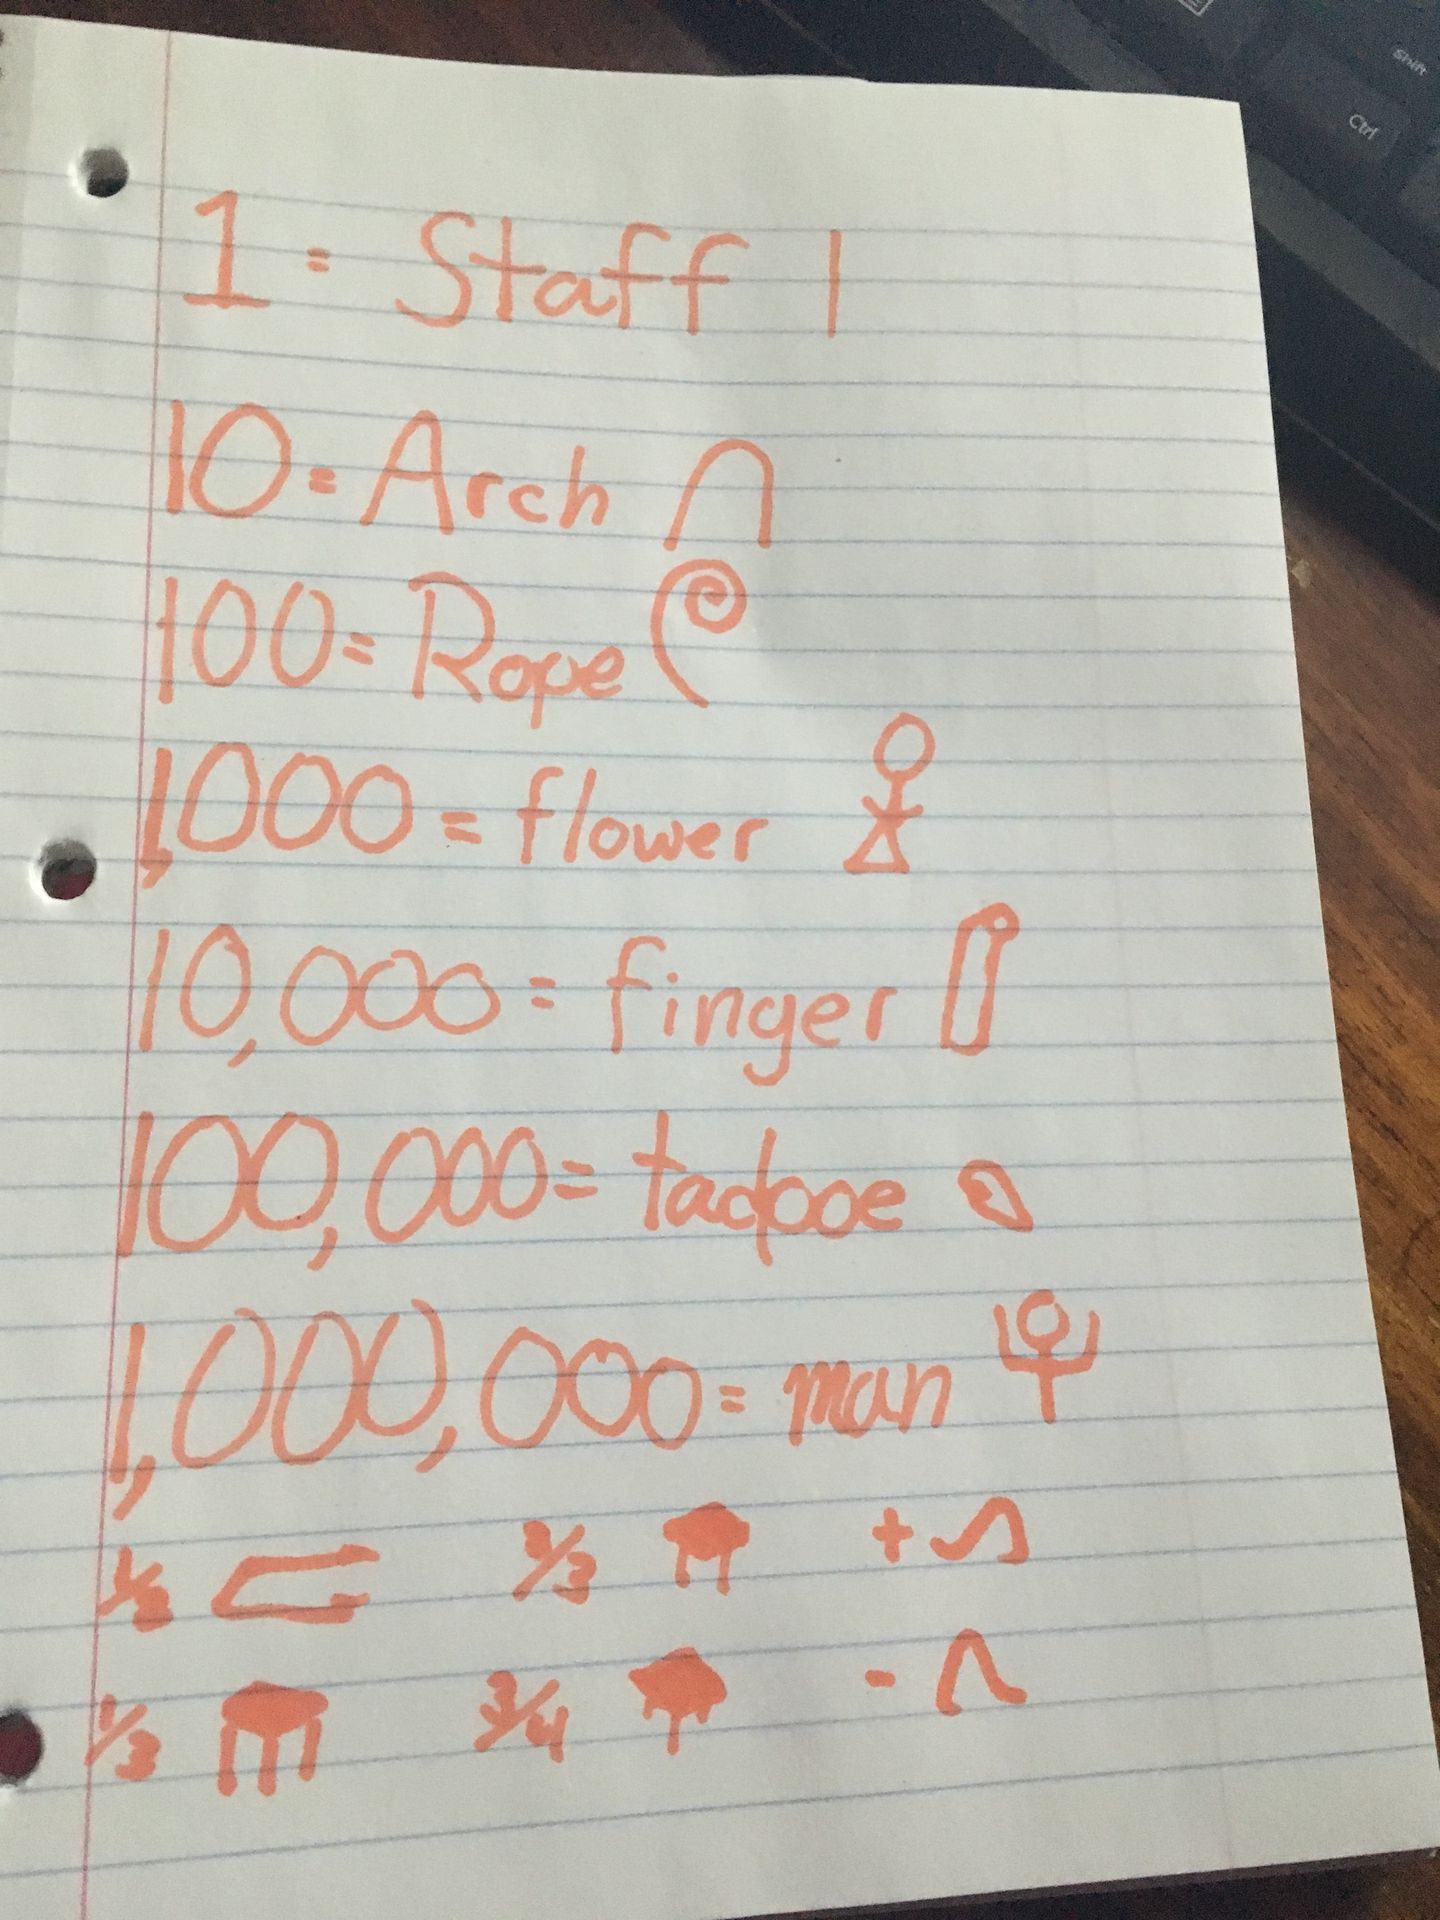 Shift
Ctrl
1 = Staff |
10 = Arch
100 = Rope
1,000 = flower
10,000 = finger
100,000 = tadpoe
1,000,000 = man
1/2 2/3 +
1/3 3/4 -